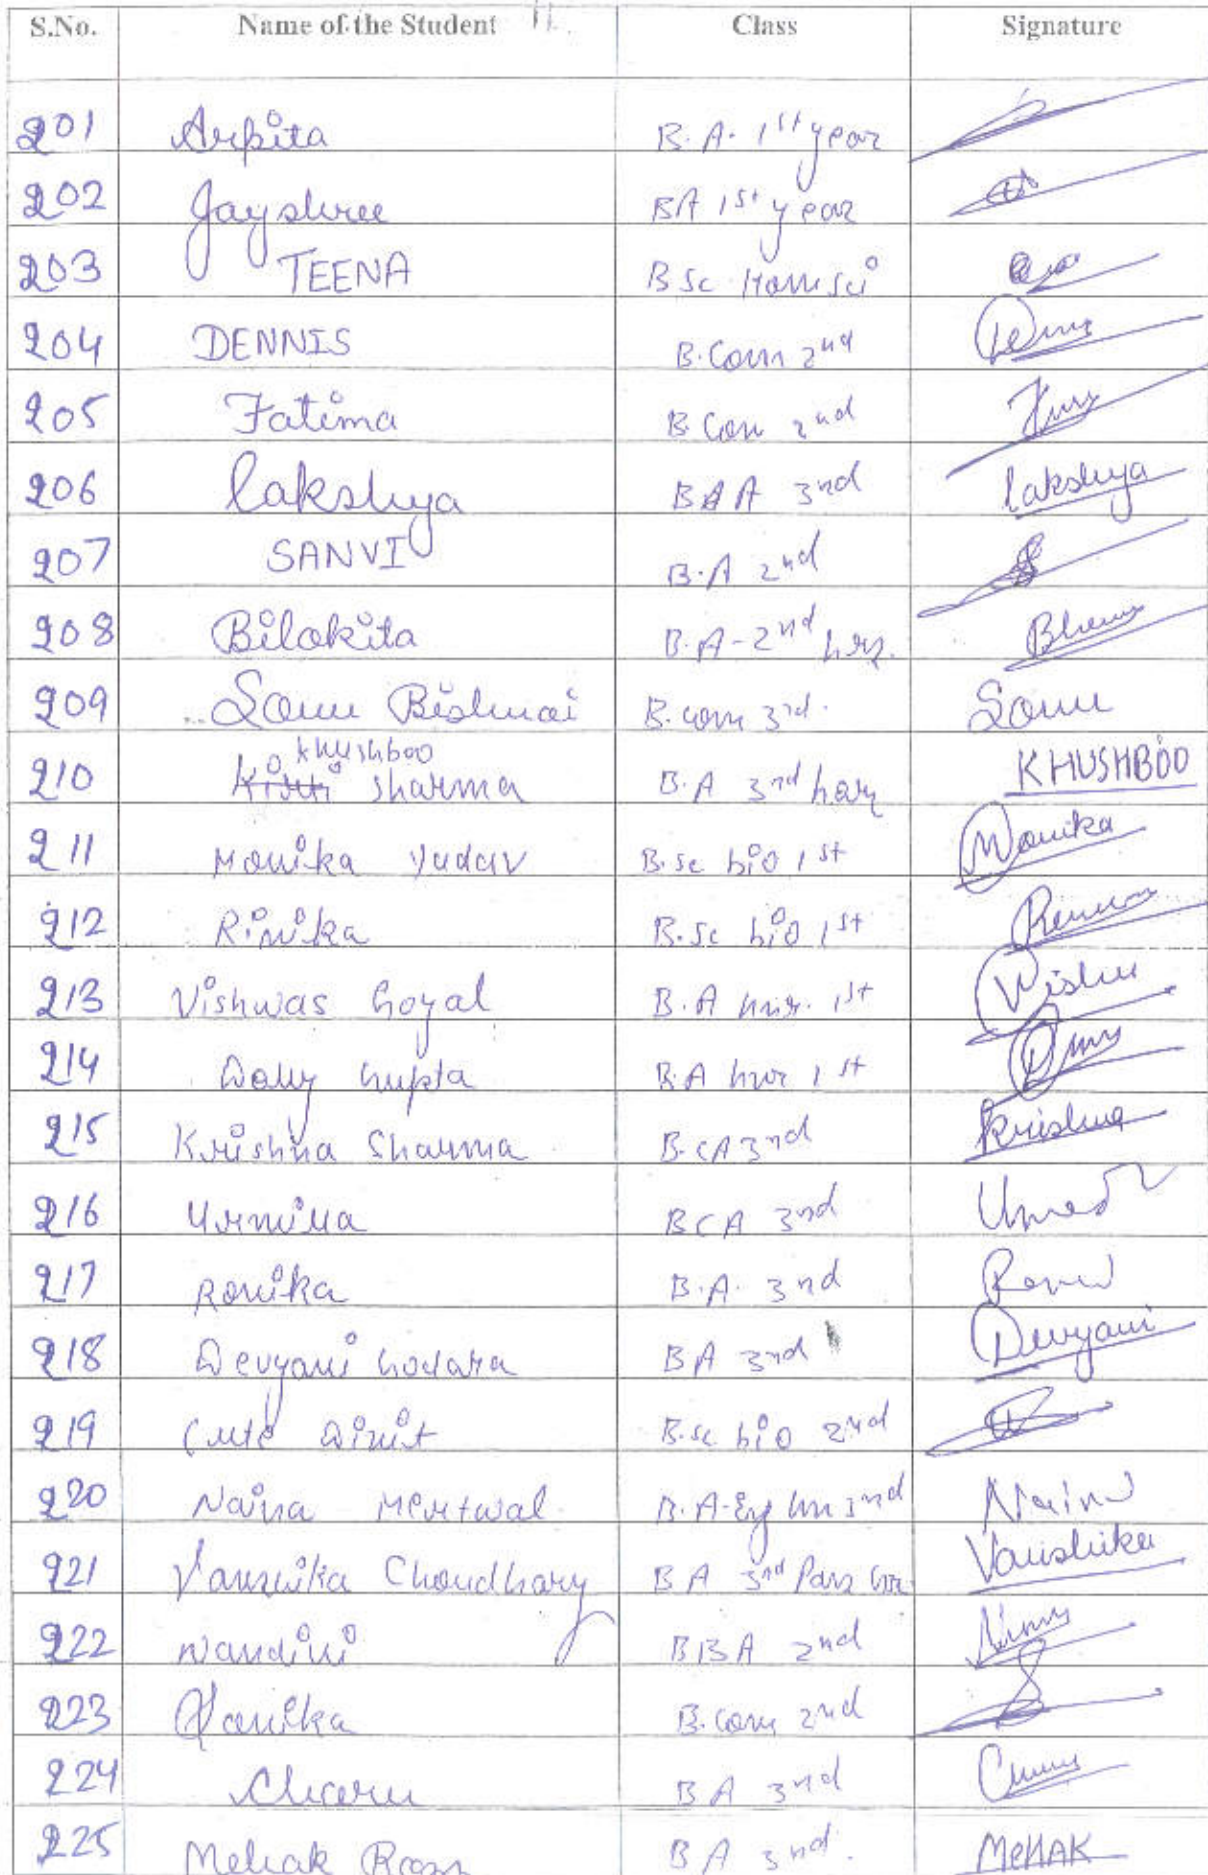 S.No. Name of the Student Class Signature
201 Arpita B.A. 1st year
202 Jayshree BA 1st year
203 TEENA B Sc. Hom sci
204 DENNIS B.Com 2nd
205 Fatima B Com 2nd
206 lakshya BBA 3rd lakshya
207 SANVI B.A 2nd
208 B.A - 2nd
209 Sonu Bishnoi B.com 3rd. Sonu
khushboo
210 sharma B.A 3rd KHUSHBOO
211 Monika Yadav B.sc bio 1st Monika
212 Rinika B.sc bio 1st
213 Vishwas Goyal B.A 1st Vishu
214 Dolly Gupta B.A 1st
215 Krishna Sharma B.CA 3rd Krishna
216 Urmilla BCA 3rd
217 Ronika B.A. 3rd
218 Devyani Godara BA 3rd Devyani
219 B.sc. bio 2nd
220 Naina B.A-Eng 3rd
221 Vanshika Choudhary BA 3rd Vanshika
222 Nandini BBA 2nd
223 B.com 2nd
224 Charu BA 3rd
225 Mehak BA 3rd. MEHAK